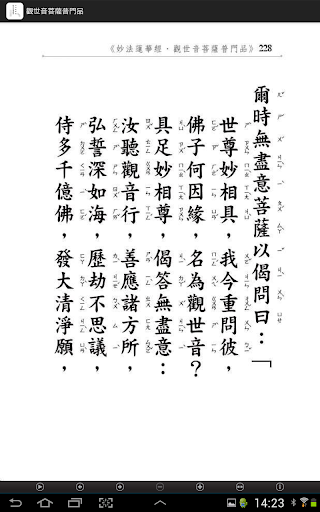 觀世音菩薩普門品
《妙法蓮華經·觀世音菩薩普門品》 228
爾時無盡意菩薩以偈問曰：「
世尊妙相具，我今重問彼，
佛子何因緣，名為觀世音？
具足妙相尊，偈答無盡意：
汝聽觀音行，善應諸方所，
弘誓深如海，歷劫不思議，
侍多千億佛，發大清淨願，
14:23